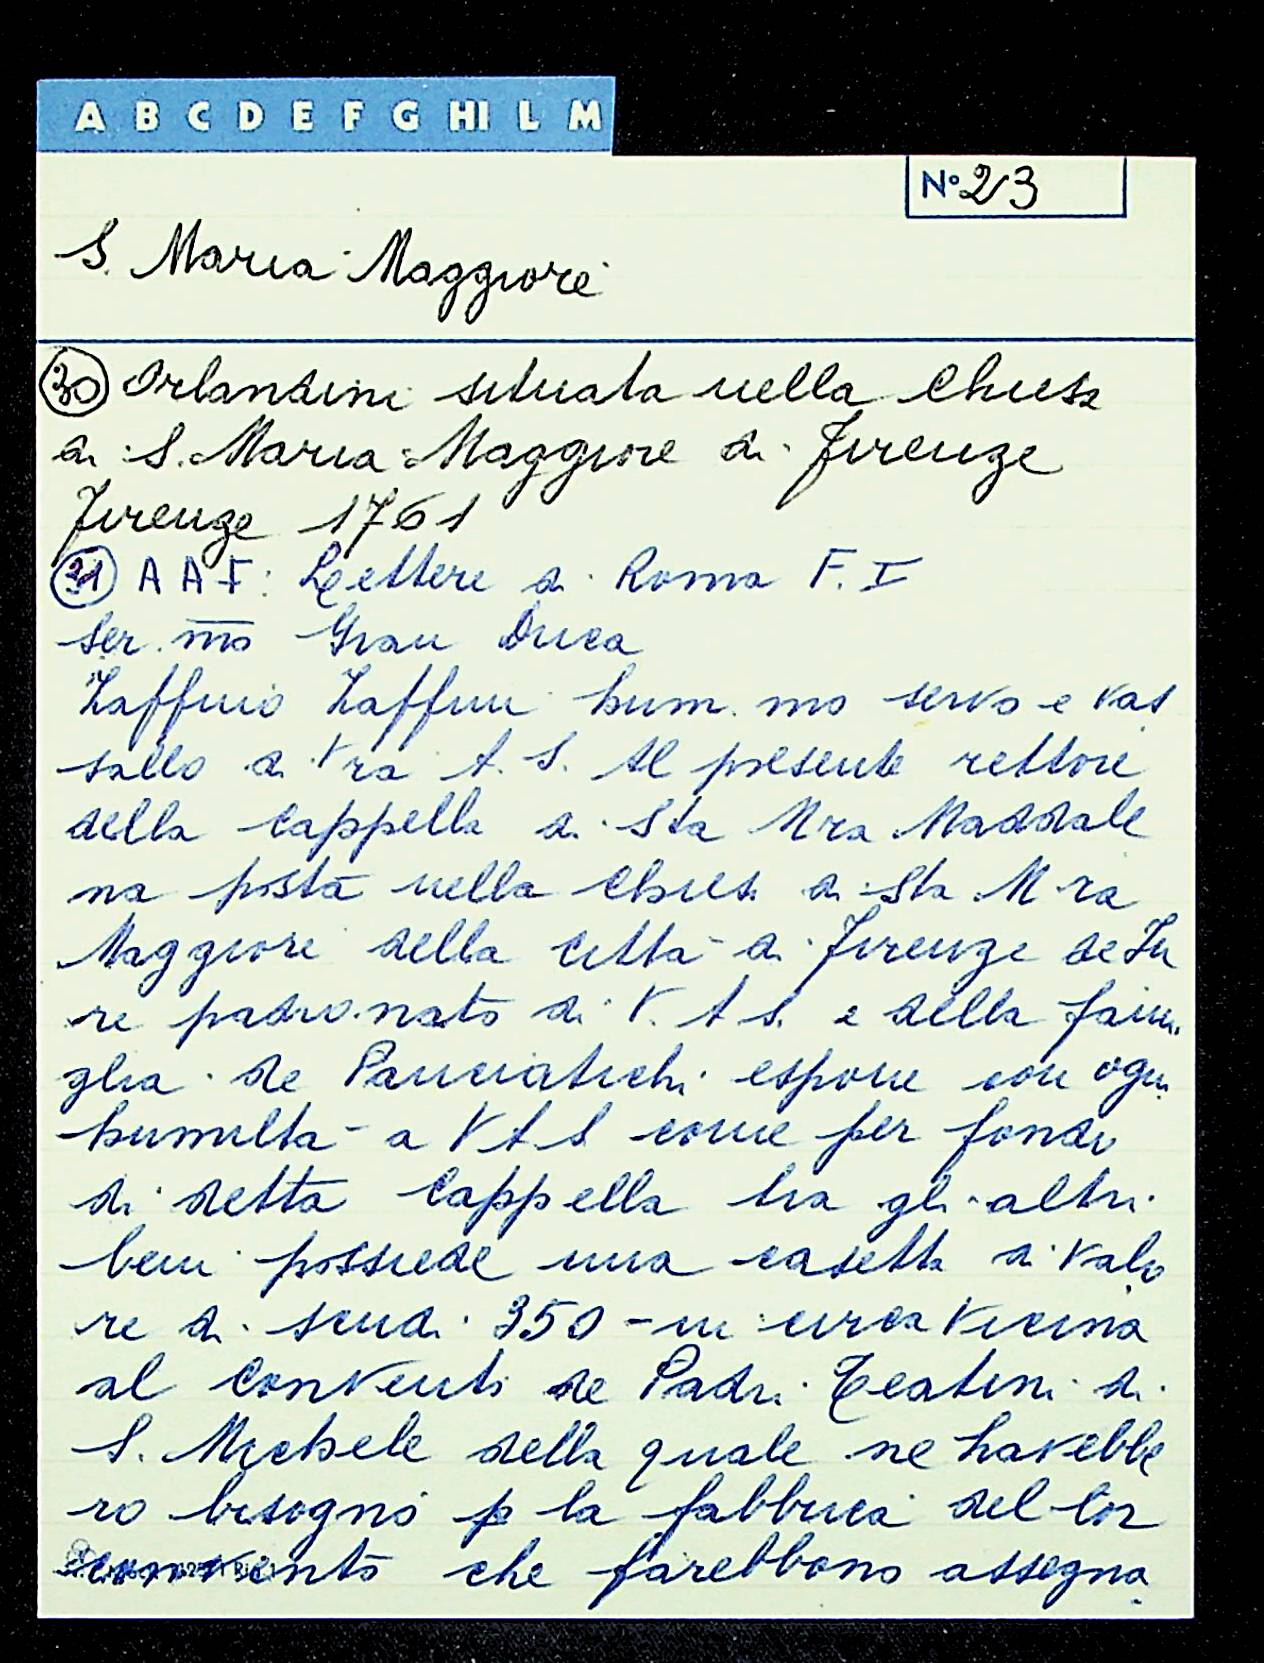 A B C D E F G HI L M
N° 23
S. Maria Maggiore
30 Orlandini situata nella Chiesa
di S. Maria Maggiore di Firenze
Firenze 1761
31 A A F: Lettere di Roma F. I
Ser. mo Gran Duca
Zaffirio Zaffini hum. mo servo e vas
sallo di Vra A. S. al presente rettore
della Cappella di Sta Mra Maddale
na posta nella Chies. di Sta M ra
Maggiore della città di Firenze de Ju
re padronato di V. A S. e della fami
glia de Panciatichi espone con ogni
humiltà a V A S come per fondo
di detta Cappella tra gli altri
beni possiede una casetta di valo
re di scudi 350 - in circa vicina
al convento de Padri Teatini di
S. Michele della quale ne havebbe
ro bisogno p la fabbrica del lor
convento che farebbono assegna